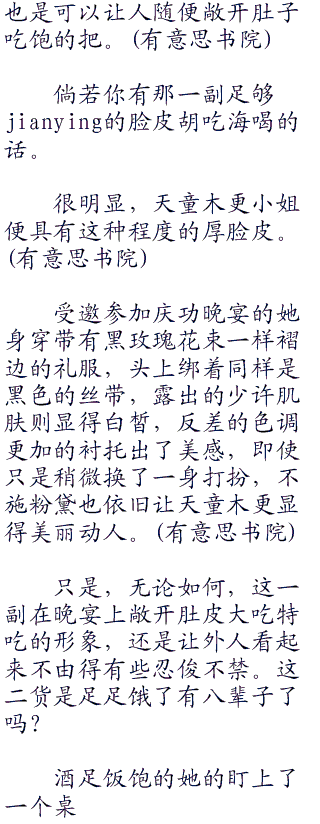 也是可以让人随便敞开肚子
吃饱的把。(有意思书院)
倘若你有那一副足够
jianying的脸皮胡吃海喝的
话。
很明显，天童木更小姐
便具有这种程度的厚脸皮。
(有意思书院)
受邀参加庆功晚宴的她
身穿带有黑玫瑰花束一样褶
边的礼服，头上绑着同样是
黑色的丝带，露出的少许肌
肤则显得白皙，反差的色调
更加的衬托出了美感，即使
只是稍微换了一身打扮，不
施粉黛也依旧让天童木更显
得美丽动人。(有意思书院)
只是，无论如何，这一
副在晚宴上敞开肚皮大吃特
吃的形象，还是让外人看起
来不由得有些忍俊不禁。这
二货是足足饿了有八辈子了
吗？
酒足饭饱的她的盯上了
一个桌